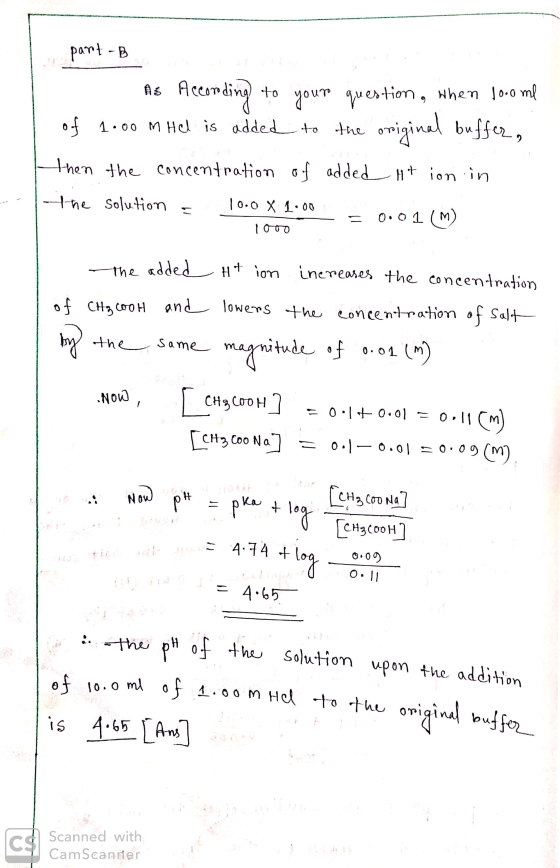 part - B
As According to your question, when 10.0 ml
of 1.00 M Hcl is added to the original buffer,
then the concentration of added H+ ion in
the solution = 10.0 X 1.00 / 1000 = 0.01 (M)
the added H+ ion increases the concentration
of CH3COOH and lowers the concentration of salt
by the same magnitude of 0.01 (M)
Now, [CH3COOH] = 0.1 + 0.01 = 0.11 (M)
[CH3COONa] = 0.1 - 0.01 = 0.09 (M)
∴ Now pH = pka + log [CH3COONa] / [CH3COOH]
= 4.74 + log 0.09 / 0.11
= 4.65
∴ the pH of the solution upon the addition
of 10.0 ml of 1.00 M Hcl to the original buffer
is 4.65 [Ans]
CS Scanned with
CamScanner